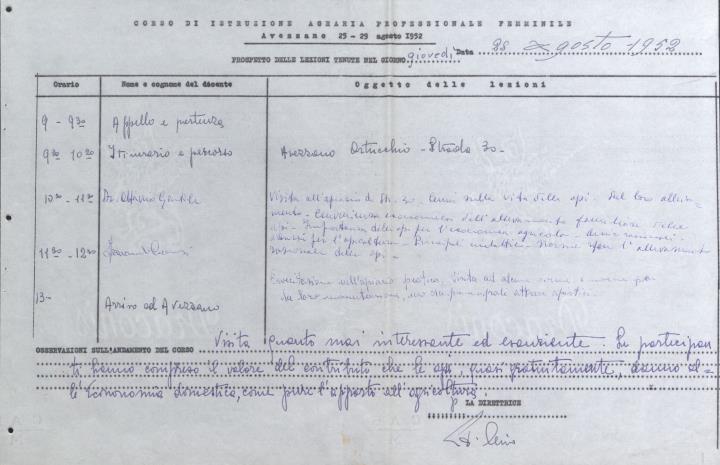 CORSO DI ISTRUZIONE AGRARIA PROFESSIONALE FEMMINILE
Avezzano 25 - 29 agosto 1952
PROSPETTO DELLE LEZIONI TENUTE NEL GIORNO giovedì Data 28 agosto 1952
Orario Nome e cognome del docente Oggetto delle lezioni
9 - 9 30 Appello e partenza
9 30 10 20 Itinerario e percorso Avezzano Ortucchio - Strada 30 -
10 20 - 11 20 Dr. Ottavio Gentile Visita all'apiario di St. 30. Cenni sulla vita delle api. Del loro alleva-
mento - Convenienza economica dell'allevamento delle
api - Importanza delle api per l'economia agricola
per l'apicoltura - Principi - Norme per l'allevamento
11 20 - 12 30 razionale delle api -
Esercitazione nell'apiario pratico, visita ad alcune arnie e norme per
la loro
13 - Arrivo ad Avezzano
OSSERVAZIONI SULL'ANDAMENTO DEL CORSO Visita quanto mai interessante ed esauriente. Le partecipan
ti hanno compreso il valore del contributo che le api, quasi gratuitamente, danno al-
l'Economia domestica, come pure l'apporto all'agricoltura.
LA DIRETTRICE